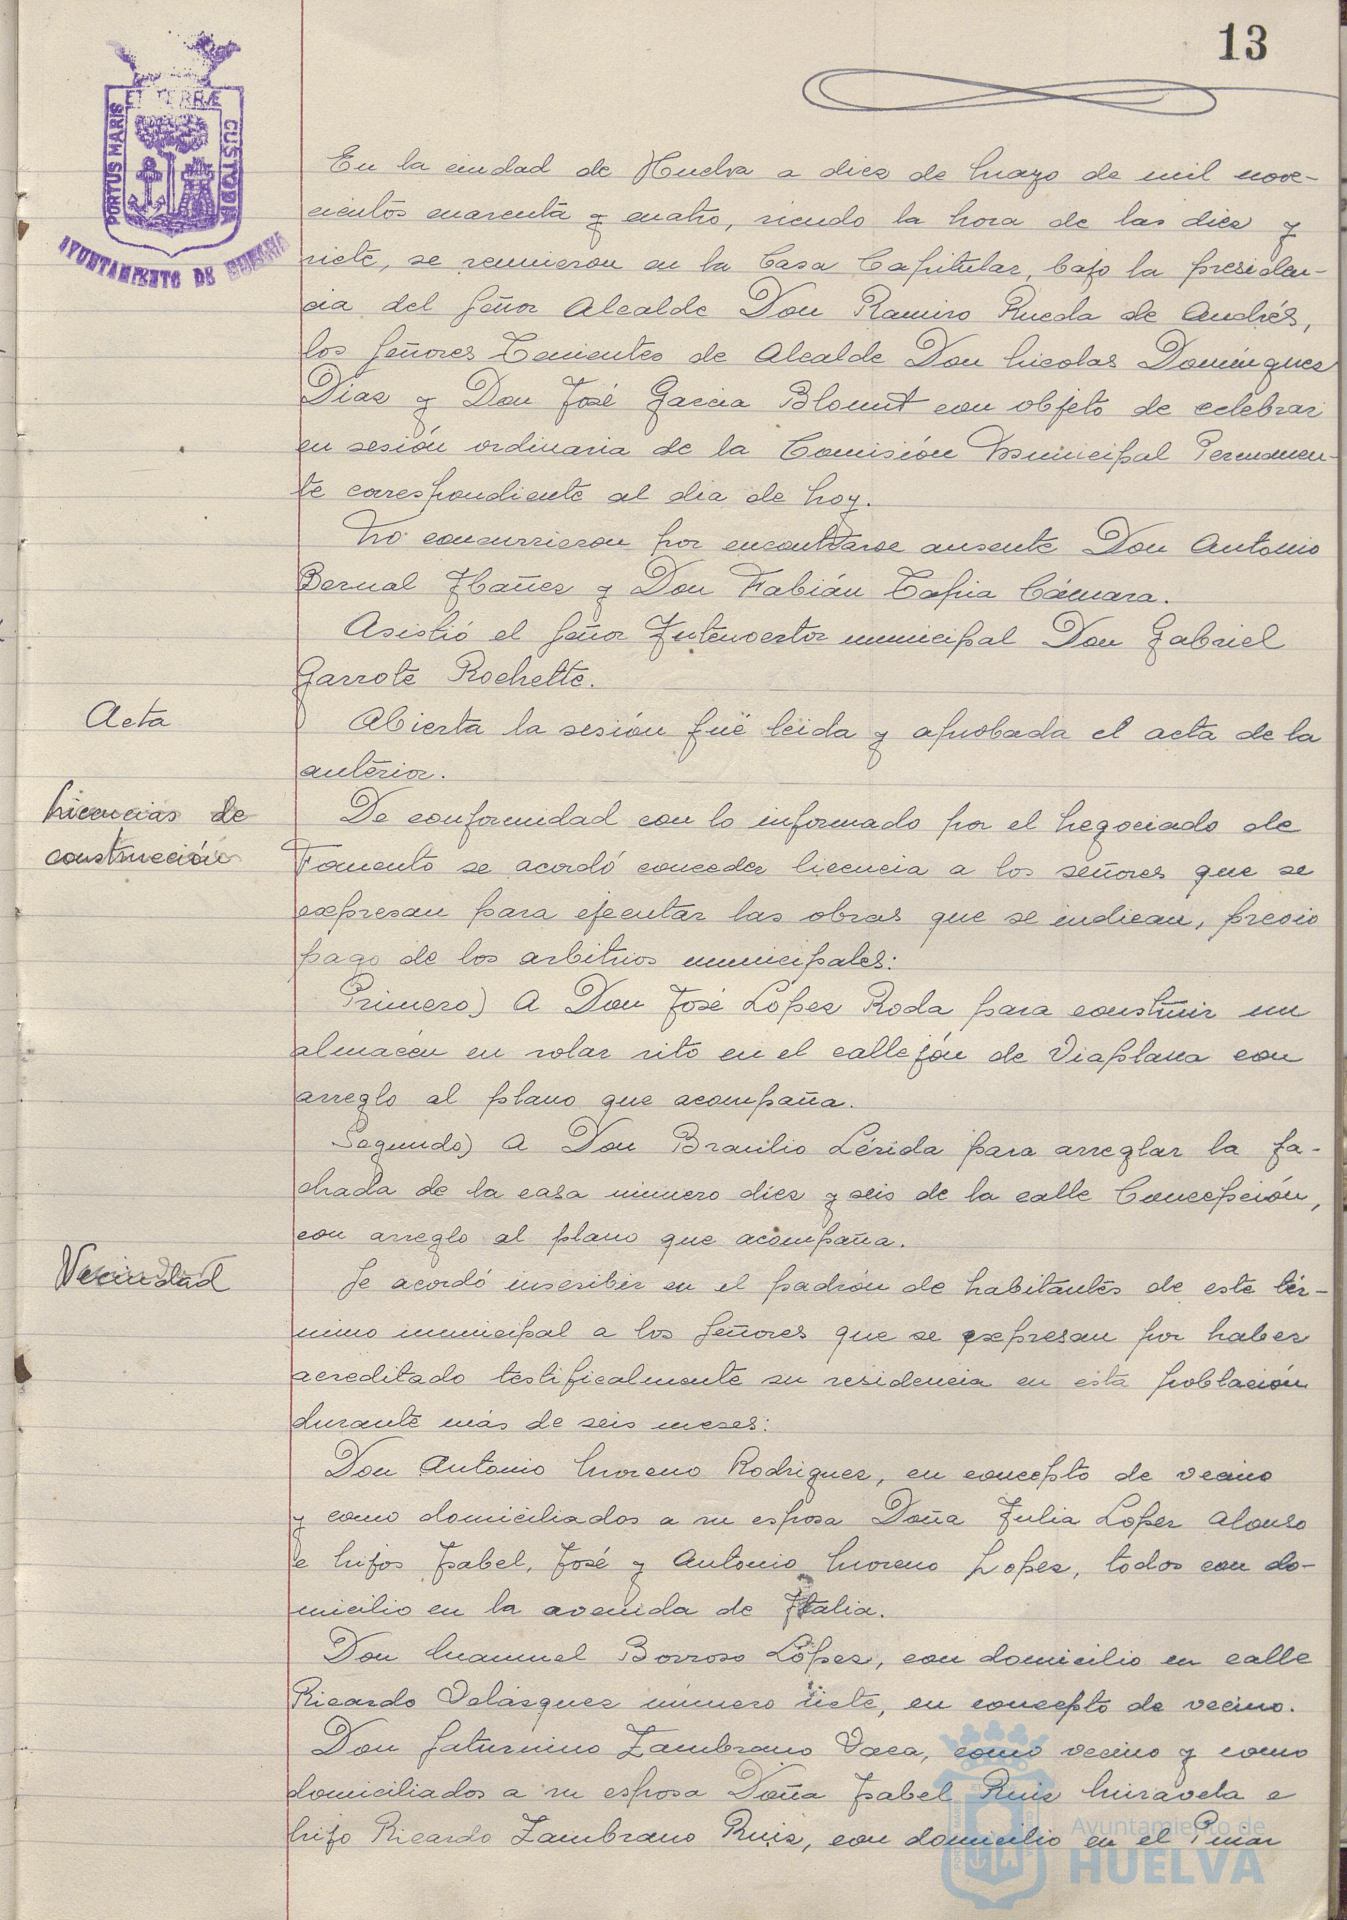 13
PORTUS MARIS ET TERRÆ CUSTODIA
AYUNTAMIENTO DE HUELVA
En la ciudad de Huelva a diez de Mayo de mil nove-
cientos cuarenta y cuatro, siendo la hora de las diez y
siete, se reunieron en la Casa Capitular, bajo la presiden-
cia del Señor Alcalde Don Ramiro Rueda de Andrés,
los Señores Tenientes de Alcalde Don Nicolas Domínguez
Diaz y Don José Garcia Blount con objeto de celebrar
en sesión ordinaria de la Comisión Municipal Permanen-
te correspondiente al dia de hoy.
No concurrieron por encontrarse ausente Don Antonio
Bernal Ibañez y Don Fabián Tapia Cámara.
Asistió el Señor Interventor municipal Don Gabriel
Garrote Rochette.
Acta
Abierta la sesión fué leida y aprobada el acta de la
anterior.
Licencias de
construcción
De conformidad con lo informado por el Negociado de
Fomento se acordó conceder licencia a los señores que se
expresan para ejecutar las obras que se indican, previo
pago de los arbitrios municipales:
Primero) A Don José López Roda para construir un
almacén en solar sito en el callejón de Viaplana con
arreglo al plano que acompaña.
Segundo) A Don Braulio Lérida para arreglar la fa-
chada de la casa número diez y seis de la calle Concepción,
con arreglo al plano que acompaña.
Vecindad
Se acordó inscribir en el padrón de habitantes de este tér-
mino municipal a los Señores que se expresan por haber
acreditado testificalmente su residencia en esta población
durante más de seis meses:
Don Antonio Moreno Rodriguez, en concepto de vecino
y como domiciliados a su esposa Doña Julia Lopez Alonso
e hijos Isabel, José y Antonio Moreno Lopez, todos con do-
micilio en la avenida de Italia.
Don Manuel Borroso López, con domicilio en calle
Ricardo Velásquez número siete, en concepto de vecino.
Don Saturnino Zambrano Vaca, como vecino y como
domiciliados a su esposa Doña Isabel Ruiz Miravela e
hijo Ricardo Zambrano Ruiz, con domicilio en el Pinar
Ayuntamiento de
HUELVA